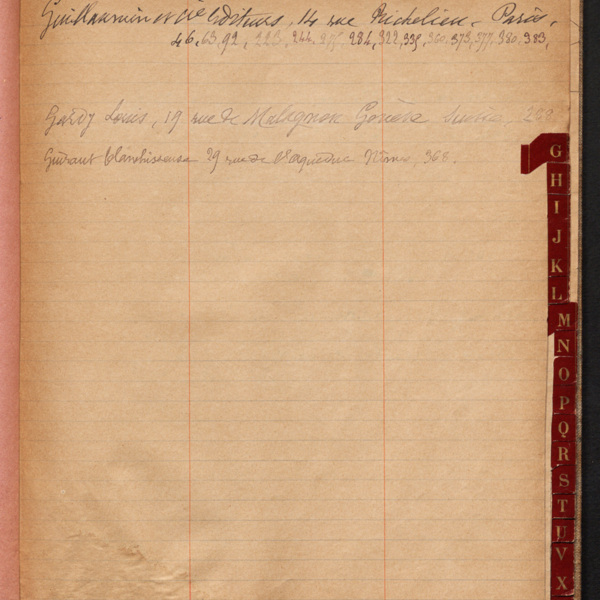 Guillaumin et Cie Editeurs, 14 rue Richelieu - Paris.
46, 63, 92, 223, 244, 284, 322, 335, 360, 373, 377, 380, 383,
Gardy Louis, 19 rue de Malagnou Genève Suisse 269
Guiraut blanchisseuse 29 rue de l'aqueduc Nîmes, 368.
G
H
I
J
K
L
M
N
O
P
Q
R
S
T
U
V
X